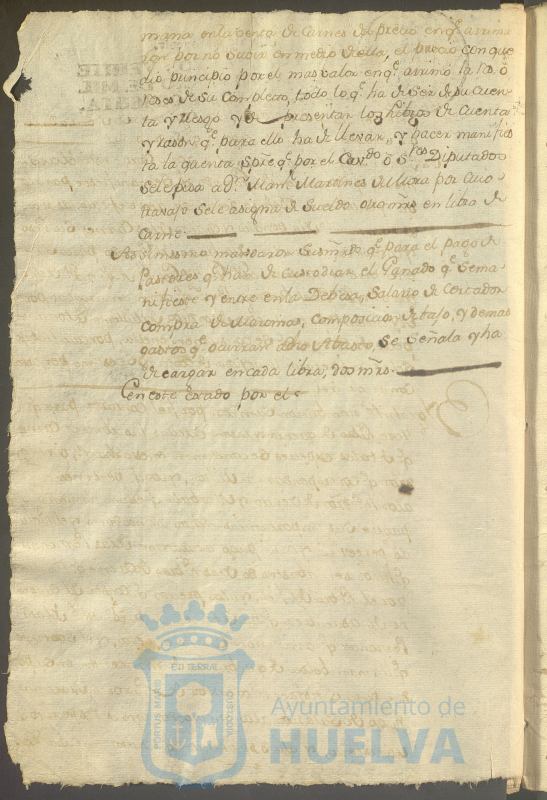 mana en la venta de Carnes del precio en qe. arrima
por no Subir en medio de ella, el precio con que
dio principio por el mas valor en qe. arrimó la
de Su Completo, todo lo qe. ha de Ser de su Cuen
ta y Riesgo y presentar los Libros de Cuenta
y razon qe. para ello ha de llevar, y hacer manifies
ta la quenta Spre qe. por el Cavdo. ó Sres. Diputados
Sele pida a Dn. Manl. Martines de Mora por Cuio
travajo Sele asigna de Sueldo mrs. en libra de
Carne
Assimismo mandaron Sus mrds. qe. para el pago de
Pastores qe. han de Custodiar el Ganado qe. Sema-
nifieste y entre en la Dehesa, Salario de Cortador
Compra de Maromas, Composicion de tajo, y demas
gastos qe. ocurran a dho Abasto, se Señala y ha
de cargar en cada libra, dos mrs.
Cen este estado por el
EN TERRAE
PORTUS MARIS
CUSTODIA
Ayuntamiento de
HUELVA